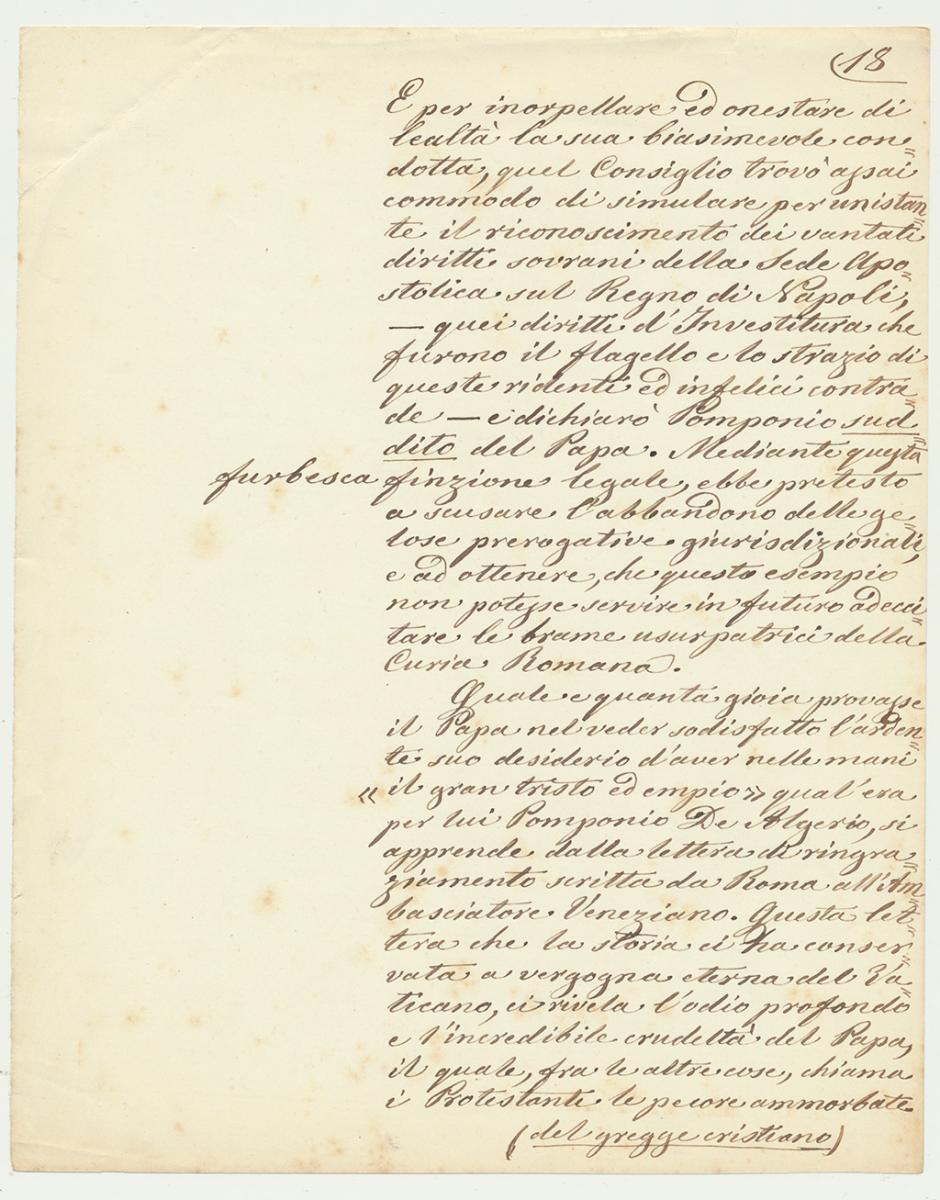 (18
E per inorpellare ed onestare di
lealtà la sua biasimevole con"
dotta, quel Consiglio trovò assai
commodo di simulare per un istan"
te il riconoscimento dei vantati
diritti sovrani della Sede Apo"
stolica sul Regno di Napoli,
— quei diritti d'Investitura che
furono il flagello e lo strazio di
queste ridenti ed infelici contra"
de — e dichiarò Pomponio sud"
dito del Papa. Mediante questa
furbesca finzione legale, ebbe pretesto
a scusare l'abbandono delle ge"
lose prerogative giurisdizionali,
e ad ottenere, che questo esempio
non potesse servire in futuro ad ecci"
tare le brame usurpatrici della
Curia Romana.
Quale e quanta gioia provasse
il Papa nel veder sodisfatto l'arden"
te suo desiderio d'aver nelle mani
« il gran tristo ed empio » qual'era
per lui Pomponio De Algerio, si
apprende dalla lettera di ringra"
ziamento scritta da Roma all'Am"
basciatore Veneziano. Questa let"
tera che la storia ci ha conser"
vata a vergogna eterna del Va"
ticano, ci rivela l'odio profondo
e l'incredibile crudeltà del Papa,
il quale, fra le altre cose, chiama
i Protestanti le pecore ammorbate
(del gregge cristiano)